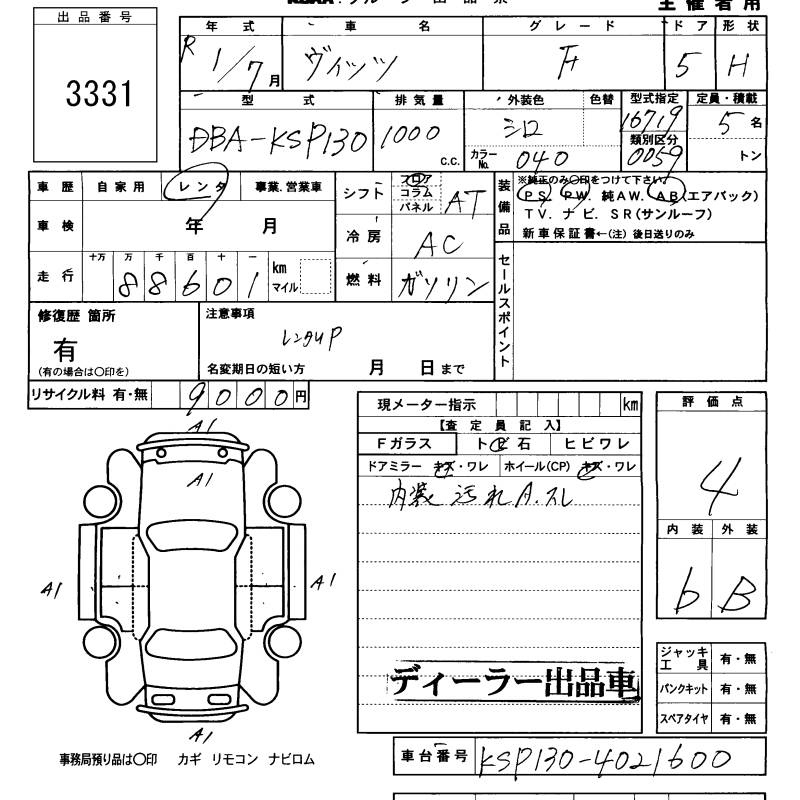 出品番号
3331
主催者用
年式 車名 グレード ドア 形状
R 1/7月 ヴィッツ F 5 H
型式 排気量 外装色 色替 型式指定 定員・積載
DBA-KSP130 1000 c.c. シロ 16719 5名
類別区分
カラーNo. 040 0059 トン
車歴 自家用 レンタ 事業.営業車
シフト フロア コラム パネル AT
装備品 ※純正のみ〇印をつけて下さい。
PS. PW. 純AW. AB(エアバック)
TV. ナビ. SR(サンルーフ)
新車保証書←(注) 後日送りのみ
車検 年 月
冷房 AC
走行 十万 万 千 百 十 一
88601 km マイル
燃料 ガソリン
セールスポイント
修復歴 箇所
有
(有の場合は〇印を)
注意事項
レンタUP
名変期日の短い方 月 日まで
リサイクル料 有・無 9000円
現メーター指示 km
【査定員記入】
Fガラス トビ石 ヒビワレ
ドアミラー キズ・ワレ ホイール(CP) キズ・ワレ
内装 汚れ A.スレ
評価点
4
内装 外装
b B
A1
A1
A1 A1
A1
ジャッキ工具 有・無
パンクキット 有・無
スペアタイヤ 有・無
ディーラー出品車
車台番号 KSP130-4021600
事務局預り品は〇印 カギ リモコン ナビロム